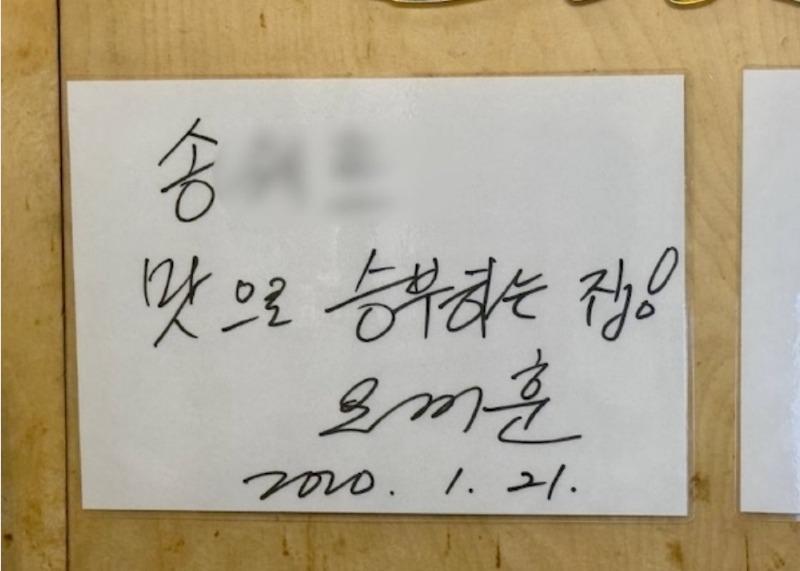 송
맛으로 승부하는 집!
2020. 1. 21.